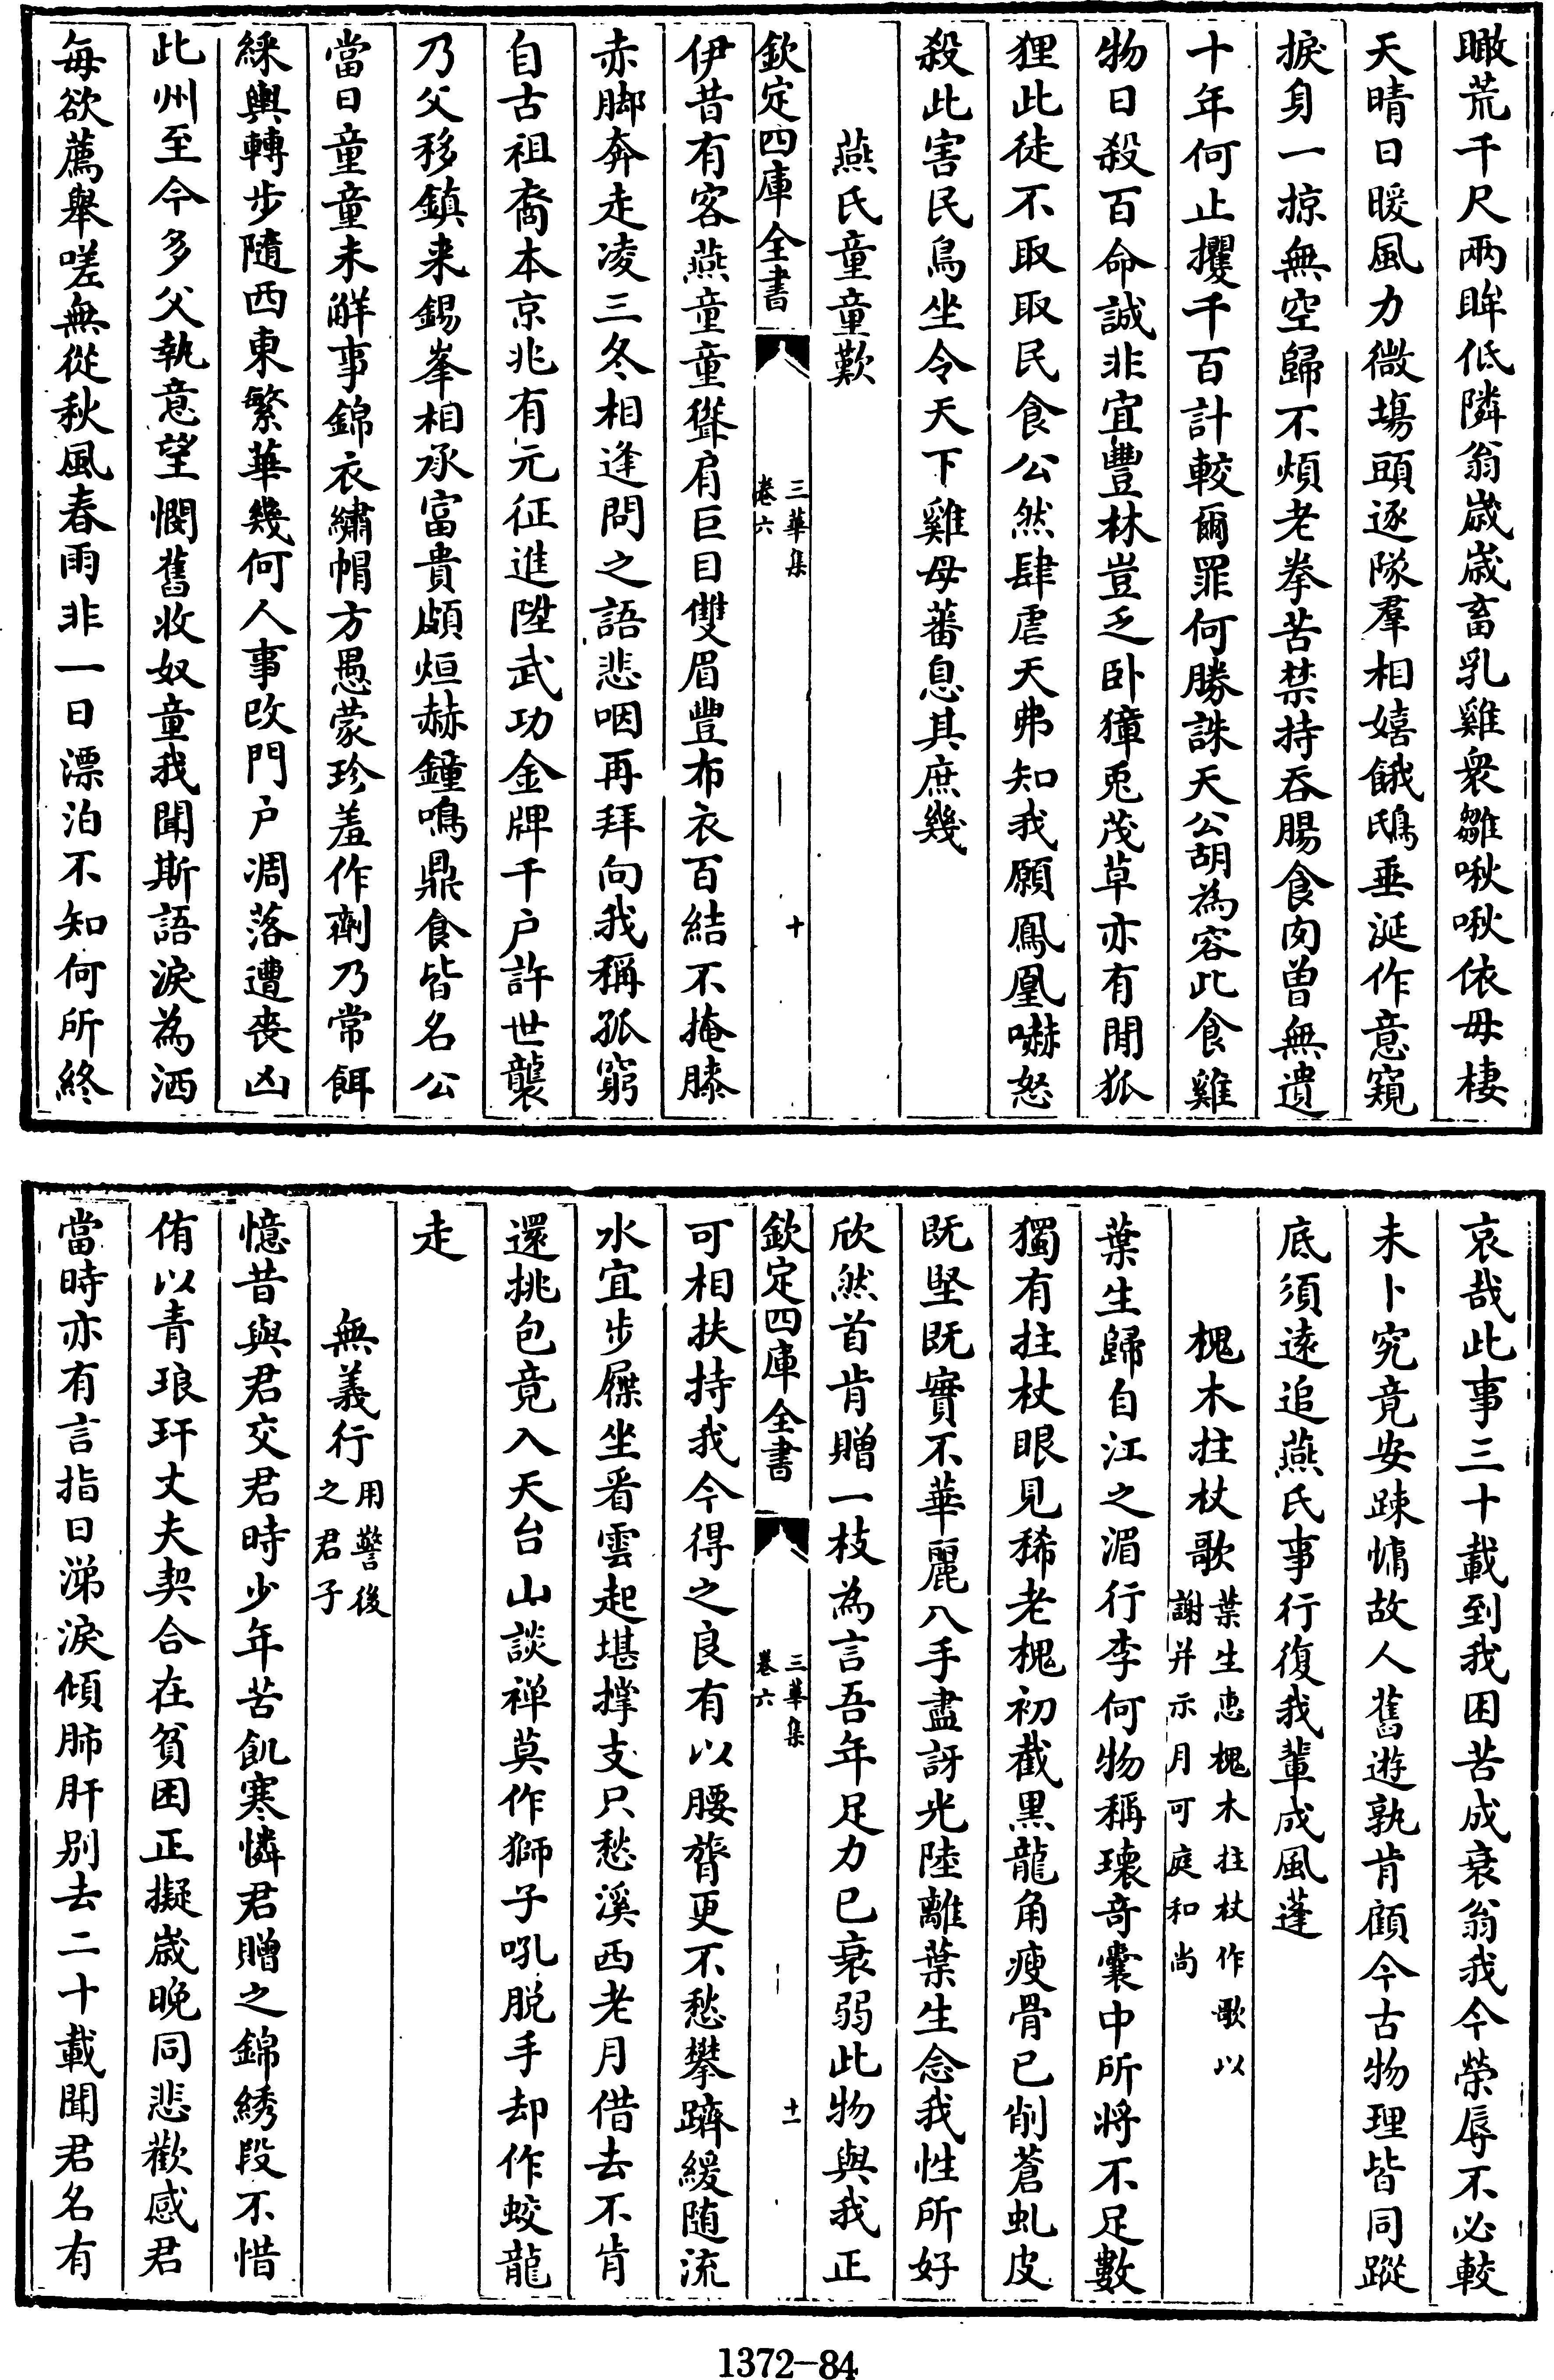 瞰荒千尺兩眸低隣翁歲歲畜乳雞衆雛啾啾依母棲
天晴日暖風力微塲頭逐隊羣相嬉餓鴟垂涎作意窺
捩身一掠無空歸不煩老拳苦禁持吞腸食肉曾無遺
十年何止攫千百計較爾罪何勝誅天公胡為容此食雞
物日殺百命誠非宜豐林豈乏卧獐兎茂草亦有閒狐
狸此徒不取取民食公然肆虐天弗知我願鳳凰嚇怒
殺此害民鳥坐令天下雞母蕃息其庶幾
燕氏童童歎
欽定四庫全書
三華集
卷六
十
伊昔有客燕童童聳肩巨目雙眉豐布衣百結不掩膝
赤脚奔走凌三冬相逢問之語悲咽再拜向我稱孤窮
自古祖裔本京兆有元征進陞武功金牌千户許世襲
乃父移鎮来錫峯相承富貴頗烜赫鐘鳴鼎食皆名公
當日童童未觧事錦衣繡帽方愚蒙珍羞作劑乃常餌
綵輿轉步隨西東繁華幾何人事改門户凋落遭喪凶
此州至今多父執意望憫舊收奴童我聞斯語淚為洒
每欲薦舉嗟無從秋風春雨非一日漂泊不知何所終
哀哉此事三十載到我困苦成衰翁我今榮辱不必較
未卜究竟安踈慵故人舊遊孰肯顧今古物理皆同蹤
底須遠追燕氏事行復我輩成風蓬
槐木拄杖歌葉生惠槐木拄杖作歌以
謝并示月可庭和尚
葉生歸自江之湄行李何物稱瓌奇囊中所将不足數
獨有拄杖眼見稀老槐初截黒龍角瘦骨已削蒼虬皮
既堅既實不華麗入手盡訝光陸離葉生念我性所好
欣然首肯贈一枝為言吾年足力已衰弱此物與我正
欽定四庫全書
三華集
卷六
十一
可相扶持我今得之良有以腰膂更不愁攀躋緩随流
水宜步屧坐看雲起堪撑支只愁溪西老月借去不肯
還挑包竟入天台山談禅莫作獅子吼脱手却作蛟龍
走
無義行用警後
之君子
憶昔與君交君時少年苦飢寒憐君贈之錦綉段不惜
侑以青琅玕丈夫契合在貧困正擬歲晚同悲歡感君
當時亦有言指日涕淚傾肺肝别去二十載聞君名有
1372-84